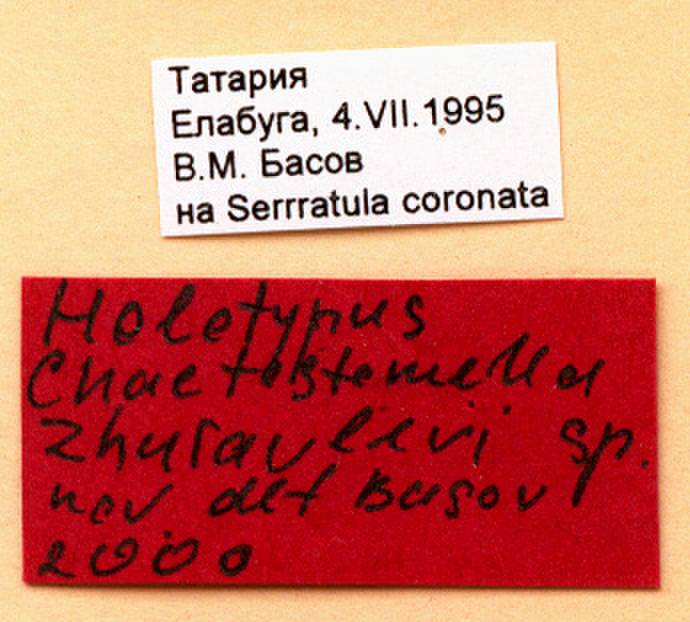 Татария
Елабуга, 4.VII.1995
В.М. Басов
на Serrratula coronata
Holotypus
Chaetostomella
zhuravlevi sp.
nov det Basov
2000